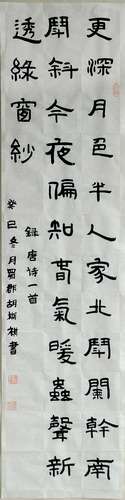 更深月色半人家北鬥闌幹南
鬥斜今夜偏知春氣暖蟲聲新
透綠窗紗
錄唐詩一首
癸巳冬月蜀郡胡書